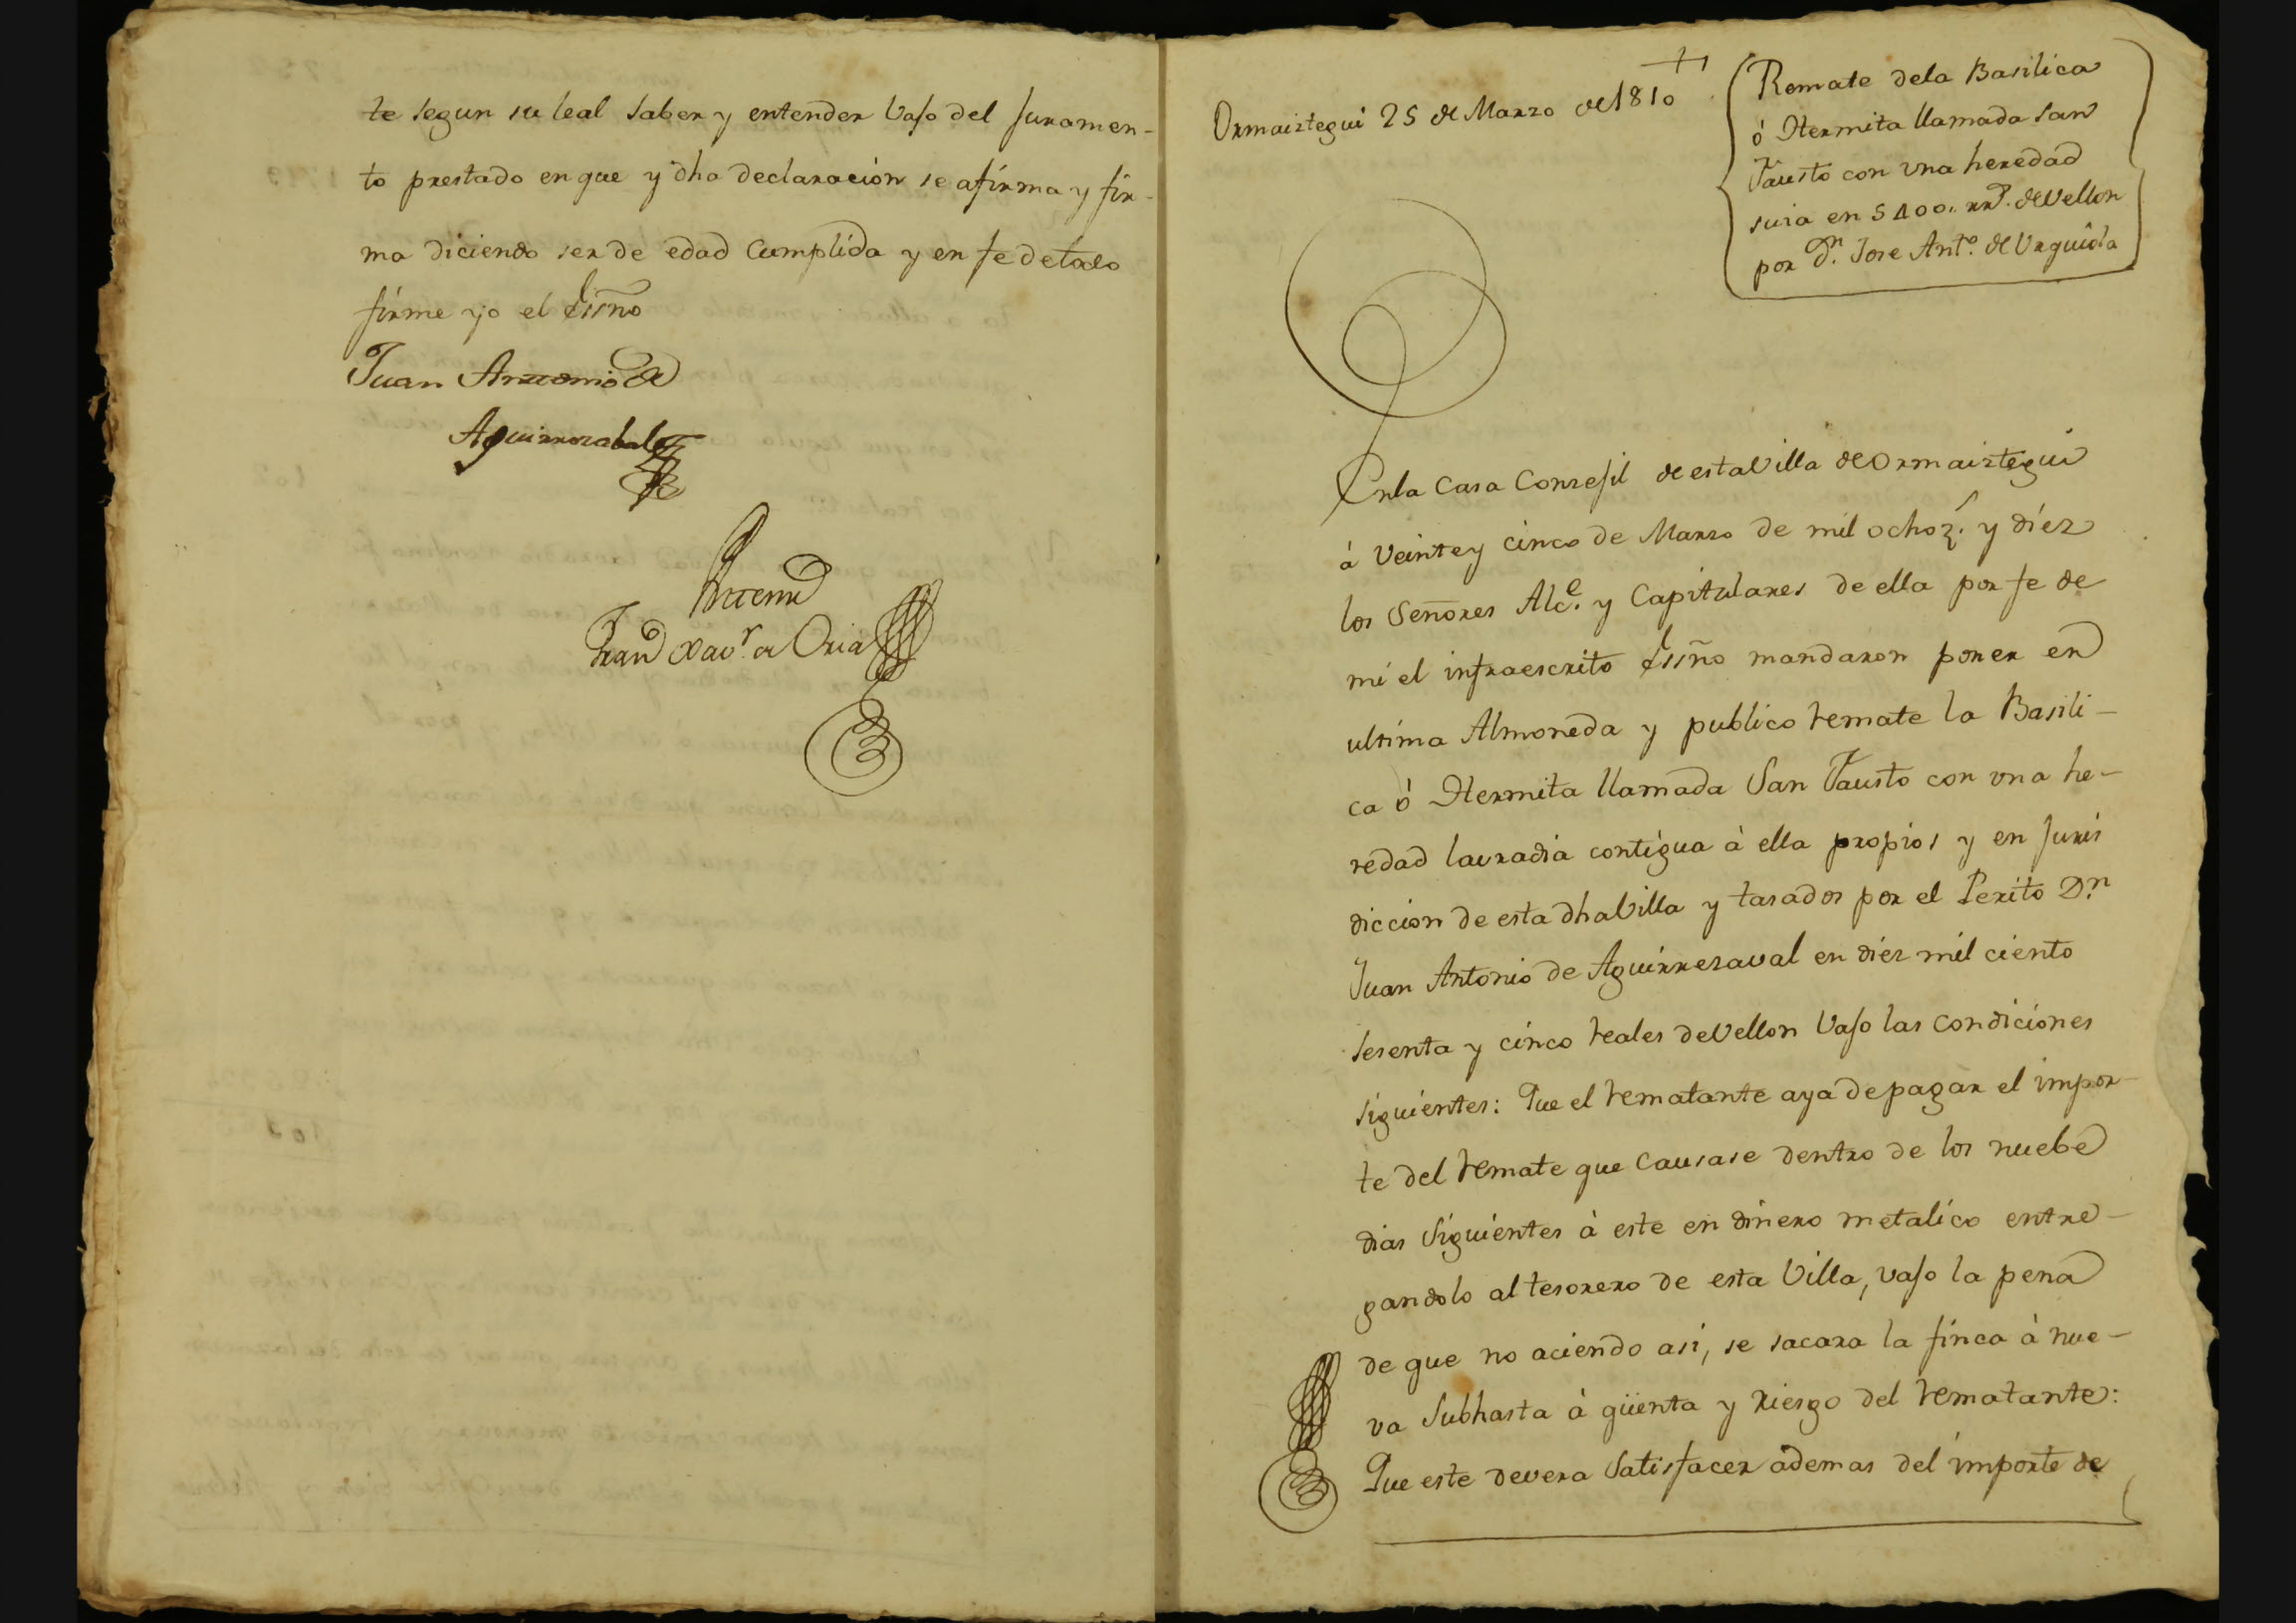 te segun su leal saber y entender vajo del juramen-
to prestado en que y dha declaracion se afirma y fir-
ma diciendo ser de edad cumplida y en fe de todo
firme yo el Essño
Juan Antonio de
Aguirrezabal
Antemi
Fran Xavr. de Oria
+
Ormaiztegui 25 de Marzo de 1810
Remate dela Basilica
ó Hermita llamada San
Fausto con vna heredad
suia en 5400. rrs. de vellon
por Dn. Jose Anto. de Urguiola
Enla Casa Consejil de esta Villa de Ormaiztegui
á Veinte y cinco de Marzo de mil ochoz. y diez
los Señores Alce. y Capitulares de ella por fe de
mi el infraescrito Essño mandaron poner en
ultima Almoneda y publico remate la Basili-
ca ó Hermita llamada San Fausto con vna he-
redad lavradia contigua à ella propios y en Juris
diccion de esta dha Villa y tasados por el Perito Dn.
Juan Antonio de Aguirrezaval en diez mil ciento
sesenta y cinco reales de Vellon Vajo las condiciones
siguientes: Que el rematante aya de pagar el impor-
te del remate que causase dentro de los nuebe
dias siguientes à este en dinero metalico entre-
gandolo al tesorero de esta Villa, vajo la pena
de que no aciendo asi, se sacara la finca à nue-
va Subhasta à güenta y riesgo del rematante:
Que este devera satisfacer ademas del importe de